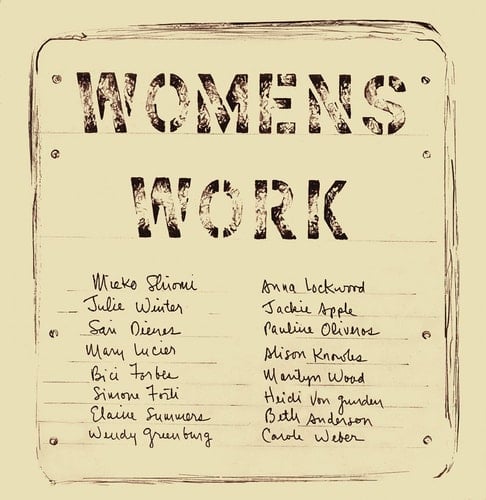 WOMENS
WORK
Mieko Shiomi
Julie Winter
Sari Dienes
Mary Lucier
Bici Forbes
Simone Forti
Elaine Summers
Wendy Greenburg
Anna Lockwood
Jackie Apple
Pauline Oliveros
Alison Knowles
Marilyn Wood
Heidi Von gunden
Beth Anderson
Carole Weber